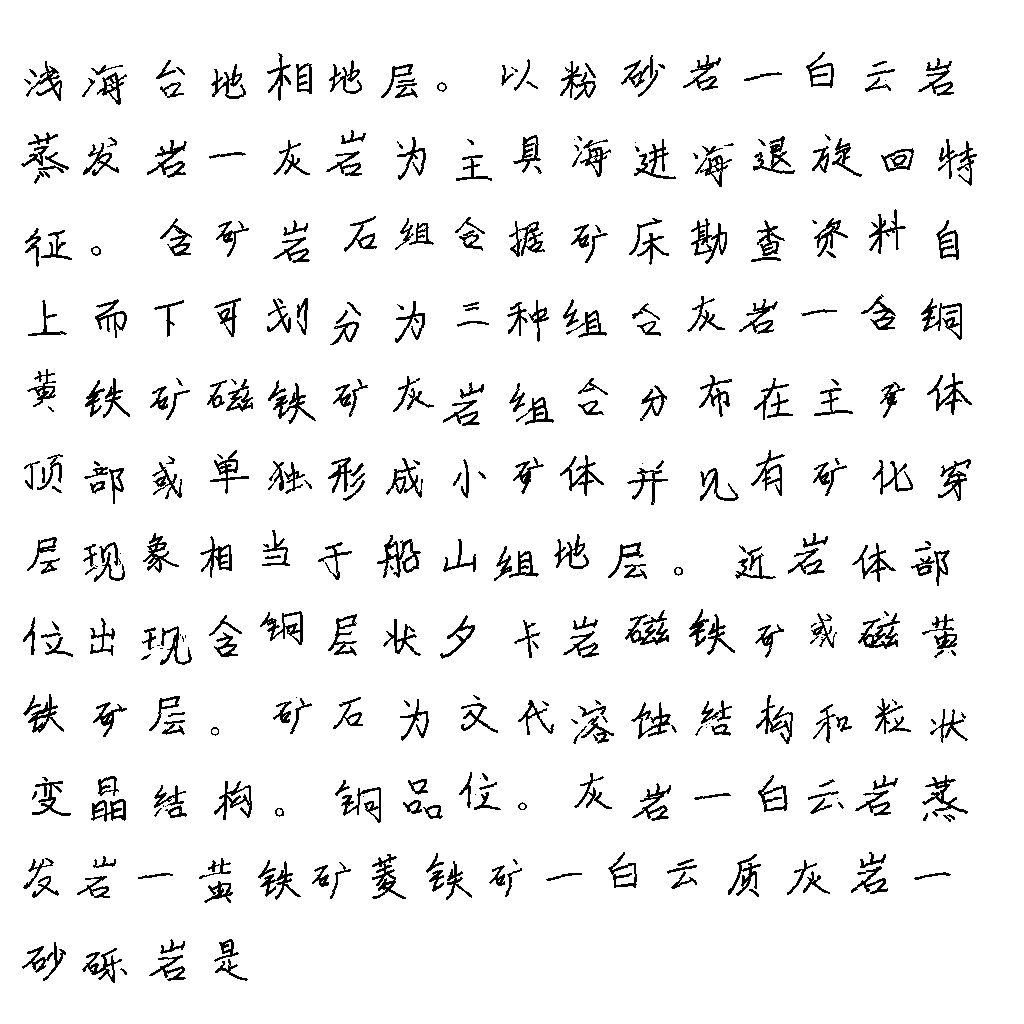 浅海台地相地层。以粉砂岩一白云岩
蒸发岩一灰岩为主具海进海退旋回特
征。含矿岩石组合据矿床勘查资料自
上而下可划分为三种组合灰岩一含铜
黄铁矿磁铁矿灰岩组合分布在主矿体
顶部或单独形成小矿体并见有矿化穿
层现象相当于船山组地层。近岩体部
位出现含铜层状夕卡岩磁铁矿或磁黄
铁矿层。矿石为交代溶蚀结构和粒状
变晶结构。铜品位。灰岩一白云岩蒸
发岩一黄铁矿菱铁矿一白云质灰岩一
砂砾岩是